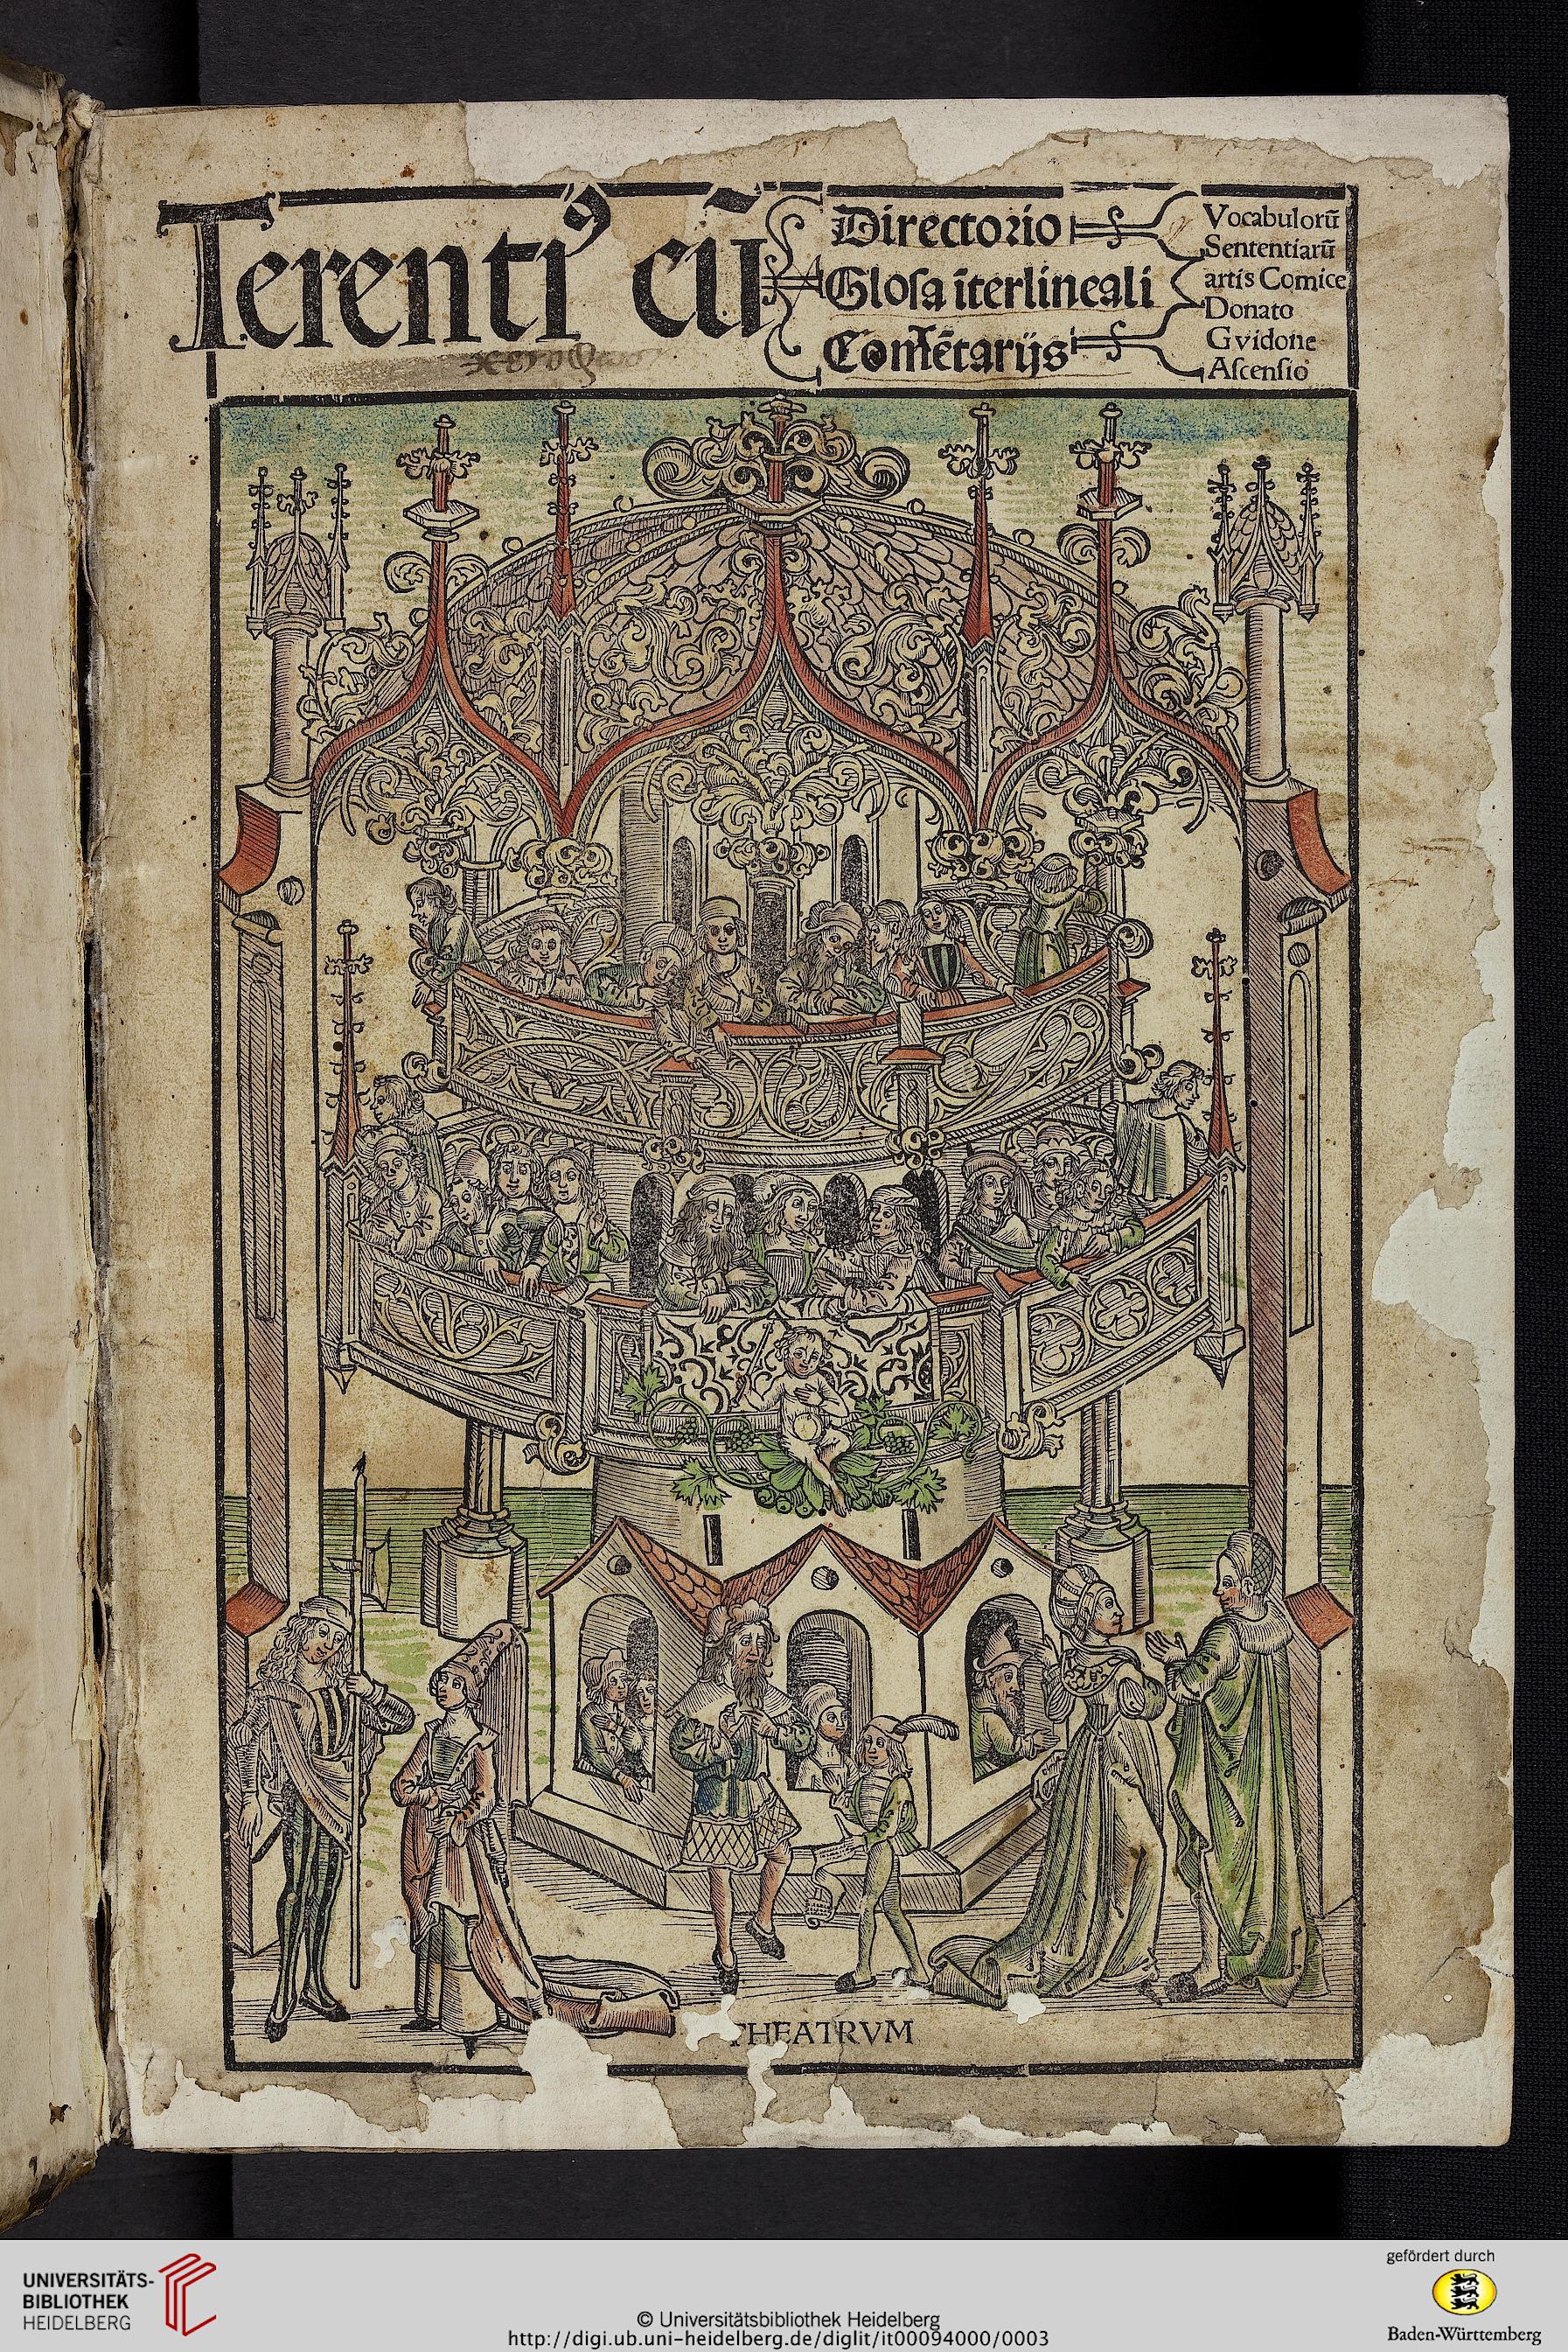 Terentiꝰ cū
Directorio
Glosa īterlineali
Comētarijs
Vocabulorū
Sententiarū
artis Comice
Donato
Gvidone
Ascensio
THEATRVM
UNIVERSITÄTS-
BIBLIOTHEK
HEIDELBERG
© Universitätsbibliothek Heidelberg
http://digi.ub.uni-heidelberg.de/diglit/it00094000/0003
gefördert durch
Baden-Württemberg